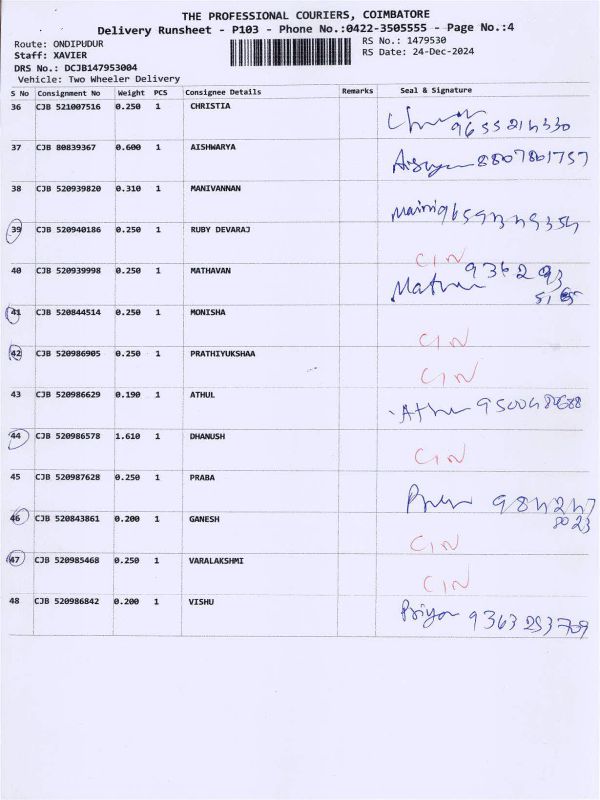 THE PROFESSIONAL COURIERS, COIMBATORE
Delivery Runsheet - P103 - Phone No.:0422-3505555 - Page No.:4
Route: ONDIPUDUR RS No.: 1479530
Staff: XAVIER RS Date: 24-Dec-2024
DRS No.: DCJB147953004
Vehicle: Two Wheeler Delivery
S No Consignment No Weight PCS Consignee Details Remarks Seal & Signature
36 CJB 521007516 0.250 1 CHRISTIA
37 CJB 80839367 0.600 1 AISHWARYA 8807801757
38 CJB 520939820 0.310 1 MANIVANNAN
39 CJB 520940186 0.250 1 RUBY DEVARAJ CIN
40 CJB 520939998 0.250 1 MATHAVAN
41 CJB 520844514 0.250 1 MONISHA CIN
42 CJB 520986905 0.250 1 PRATHIYUKSHAA CIN
43 CJB 520986629 0.190 1 ATHUL
44 CJB 520986578 1.610 1 DHANUSH CIN
45 CJB 520987628 0.250 1 PRABA
46 CJB 520843861 0.200 1 GANESH CIN
47 CJB 520985468 0.250 1 VARALAKSHMI CIN
48 CJB 520986842 0.200 1 VISHU Priya 9363253709